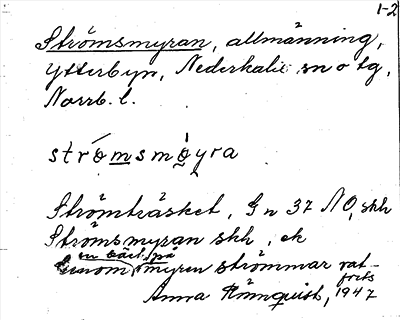 1-2
Strömsmyran, allmänning,
Ytterbyn, Nederkalix sn o tg,
Norrb. l.
strömsmøyra
Strömträsket, Gn 37 NO, skh
Strömsmyran skh, ek
en bäck på
Genom myren strömmar vat-
trets
Anna Rönnquist, 1947